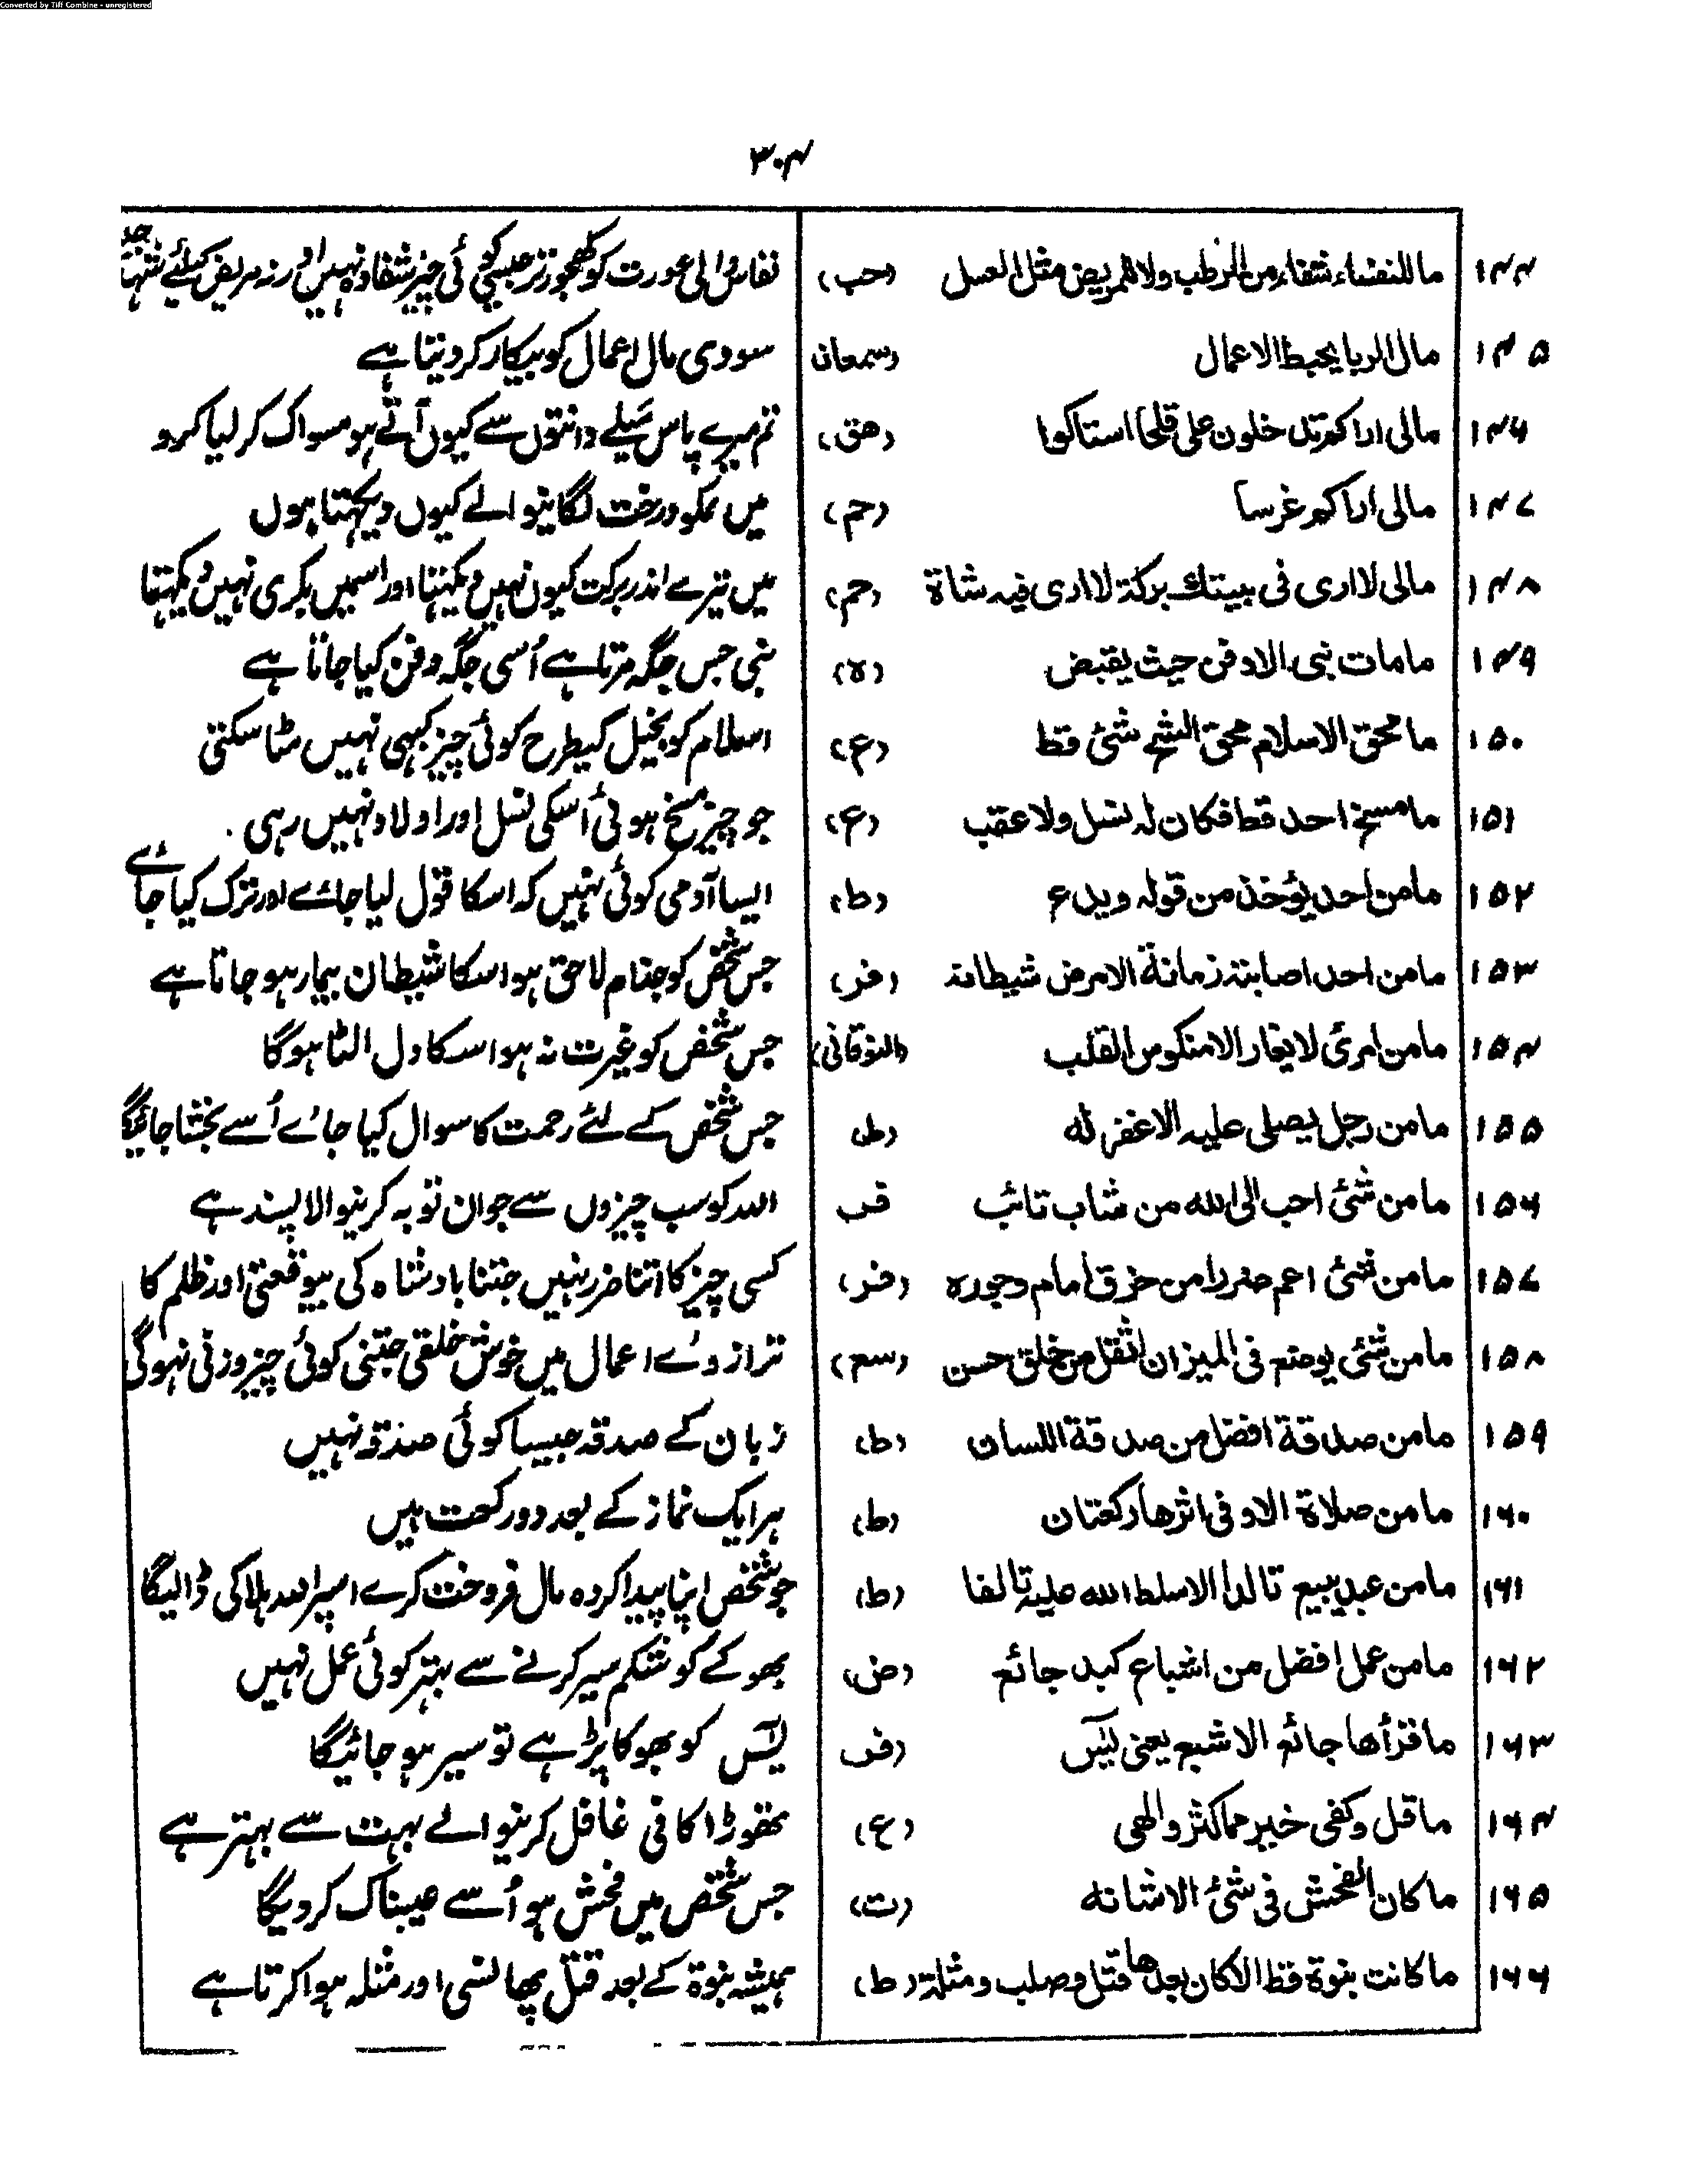 Converted by Tiff Combine - unregistered
۳۰۴
۱۴۴ ماللنفساء شفاء من الرطب ولا للمریض مثل العسل (حب) نفاس والی عورت کو کھجور تر جیسی کوئی چیز شفا دہ نہیں اور نہ مریض کیلئے شہد
۱۴۵ مال الربا یحبط الاعمال (سمعان سودی مال اعمال کو بیکار کر دیتا ہے
۱۴۶ مالی اراکم تدخلون علی قلحا استاکوا (هق) تم میرے پاس میلے دانتوں سے کیوں آتے ہو مسواک کر لیا کرو
۱۴۷ مالی اراکم غرسا (حم) میں تمکو درخت لگانیوالے کیوں دیکھتا ہوں
۱۴۸ مالی لا اری فی بیتك برکة لا اری فیه شاة (حم) میں تیرے اندر برکت کیوں نہیں دیکھتا اور اسمیں بکری نہیں دیکھتا
۱۴۹ مامات نبی الا دفن حیث یقبض (ه) نبی جس جگہ مرتا ہے اُسی جگہ دفن کیا جاتا ہے
۱۵۰ ما محق الاسلام محق الشح شئ قط (ع) اسلام کو بخیل کیطرح کوئی چیز کبہی نہیں مٹا سکتی
۱۵۱ ما مسخ احد قط فکان له نسل ولا عقب (ع) جو چیز مسخ ہوئی اسکی نسل اور اولاد نہیں رہی.
۱۵۲ مامن احد یؤخذ من قوله ویدع (ط) ایسا آدمی کوئی نہیں کہ اسکا قول لیا جائے اور ترک کیا جائے
۱۵۳ مامن احد اصابته زمانة الا مرض شیطانه (فر) جس شخص کو جذام لاحق ہو اسکا شیطان بیمار ہو جاتا ہے
۱۵۴ مامن امرئ لا یغار الا منکوس القلب (النوقانی) جس شخص کو غیرت نہ ہو اسکا دل الٹا ہوگا
۱۵۵ مامن رجل یصلی علیه الا غفر له (ط) جس شخص کے لئے رحمت کا سوال کیا جائے اُسے بخشا جائیگا
۱۵۶ مامن شئ احب الی الله من شاب تائب فر اللہ کو سب چیزوں سے جوان توبہ کرنیوالا پسند ہے
۱۵۷ مامن شئ اعم ضررا من خرق امام وجوره (فر) کسی چیز کا اتنا ضرر نہیں جتنا بادشاہ کی بیوقعتی اور ظلم کا
۱۵۸ مامن شئ یوضع فی المیزان اثقل من خلق حسن (سم) ترازوئے اعمال میں خوش خلقی جتنی کوئی چیز وزنی نہوگی
۱۵۹ مامن صدقة افضل من صدقة اللسان (ط) زبان کے صدقہ جیسا کوئی صدقہ نہیں
۱۶۰ مامن صلاة الا و فی اثرها رکعتان (ط) ہر ایک نماز کے بعد دو رکعت ہیں
۱۶۱ مامن عبد یبیع تالدا الا سلط الله علیه تالفا (ط) جو شخص اپنا پیدا کردہ مال فروخت کرے اسپر اللہ ہلاکی ڈالیگا
۱۶۲ مامن عمل افضل من اشباع کبد جائع (ض) بھوکے کو شکم سیر کرنے سے بہتر کوئی عمل نہیں
۱۶۳ ما قرأها جائع الا شبع یعنی یٰس (فر لیٰس کو بھوکا پڑہے تو سیر ہو جائیگا
۱۶۴ ما قل وکفی خیر مما کثر والهی (ع) تھوڑا کافی غافل کرنیوالے بہت سے بہتر ہے
۱۶۵ ما کان الفحش فی شئ الا شانه (ت) جس شخص میں فحش ہو اُسے عیبناک کر دیگا
۱۶۶ ما کانت نبوة قط الا کان بعدها قتل وصلب ومثلة (ط) ہمیشہ نبوۃ کے بعد قتل پھانسی اور مثلہ ہوا کرتا ہے